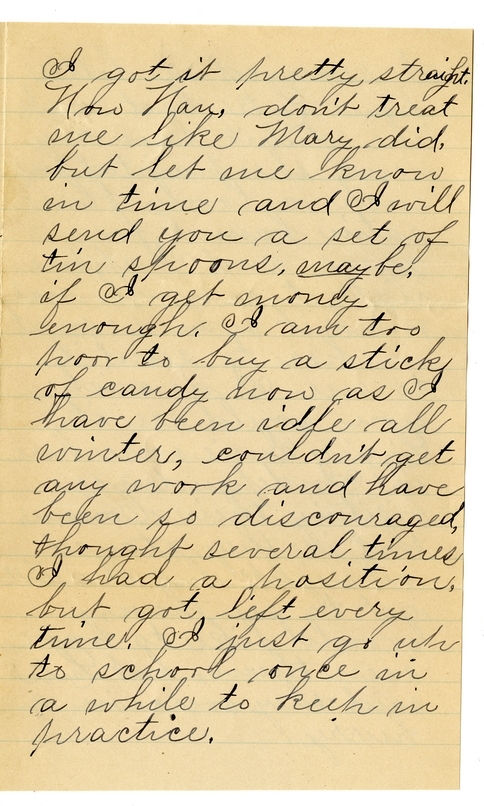 I got it pretty straight.
Now Nan, don't treat
me like Mary did,
but let me know
in time and I will
send you a set of
tin spoons, maybe,
if I get money
enough. I am too
poor to buy a stick
of candy now as I
have been idle all
winter, couldn't get
any work and have
been so discouraged,
thought several times
I had a position,
but got left every
time. I just go up
to school once in
a while to keep in
practice.